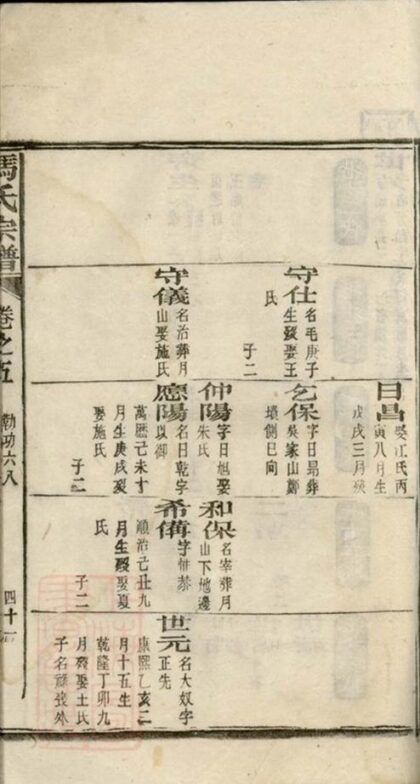 馮氏宗譜
卷之五
勤功六八
四十一
守仕
名毛庚子
生歿娶王
氏
子二
守儀
名治葬月
山娶施氏
日昌
娶江氏丙
寅八月生
戊戌三月歿
乞保
字日昻葬
吳家山鄭
墳側巳向
仲陽
字日旭娶
朱氏
應陽
名日乾字
以御
萬曆己未寸
月生庚戌歿
娶施氏
子二
和保
名宰葬月
山下地邊
希備
字恭
順治己丑九
月生歿娶夏
氏
子二
世元
名大奴字
正先
康熙乙亥二
月十五生
乾隆丁卯九
月歿娶王氏
子名